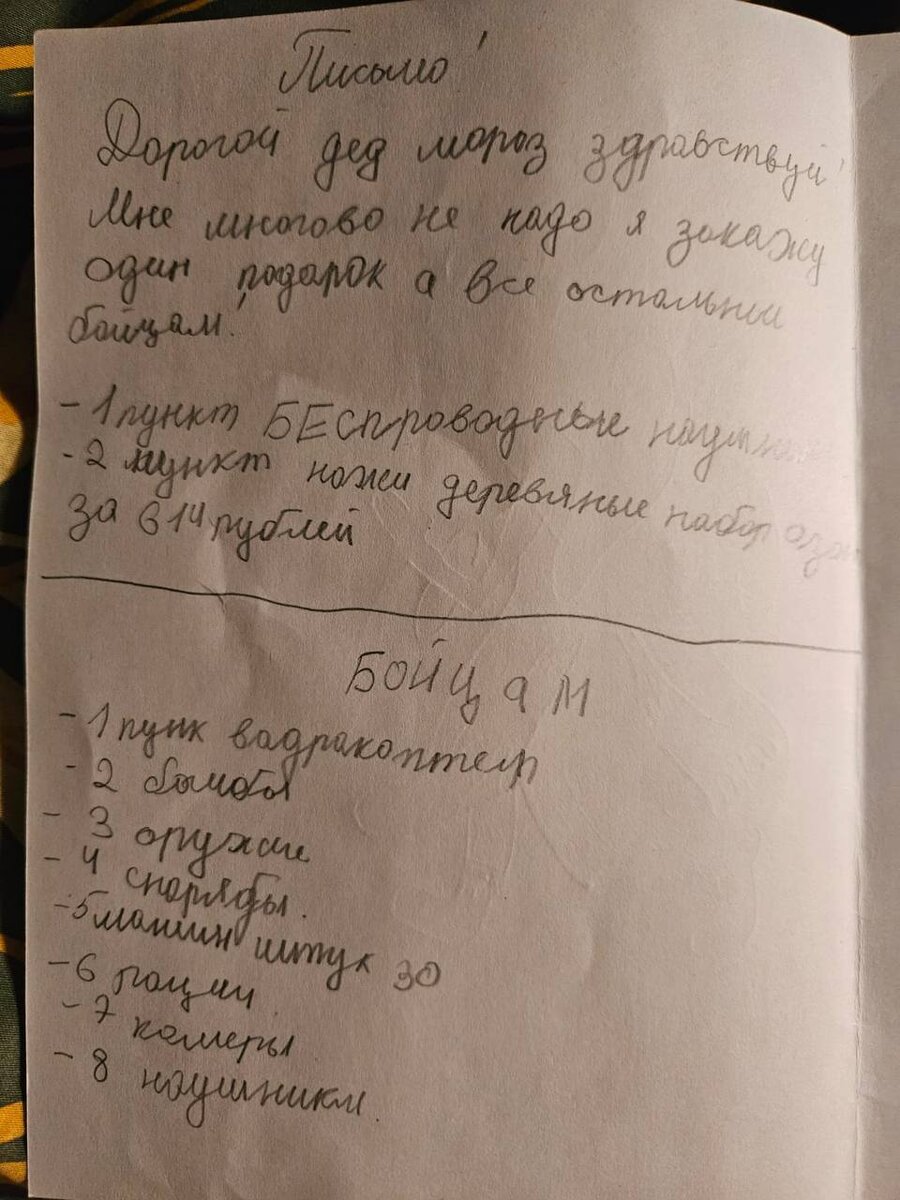 Письмо!
Дорогой дед мороз здравствуй!
Мне многово не надо я закажу
один подарок а все остальнии
бойцам!
- 1 пункт БЕспроводные
- 2 пункт ножи деревяные набор
за 614 рублей
БОЙЦаМ
- 1 пунк вадракоптеры
- 2 бымбы
- 3 оружие
- 4 снаряды.
- 5 машин штук 30
- 6 рации
- 7 камеры
- 8 наушники.